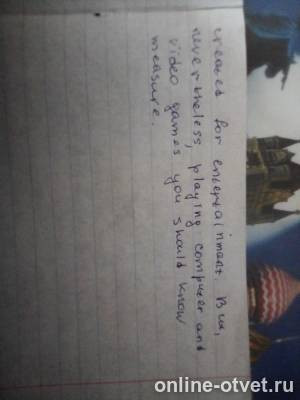 created for entertainmant. But,
nevertheless, playing computer and
video games you should know
measure.
online-otvet.ru